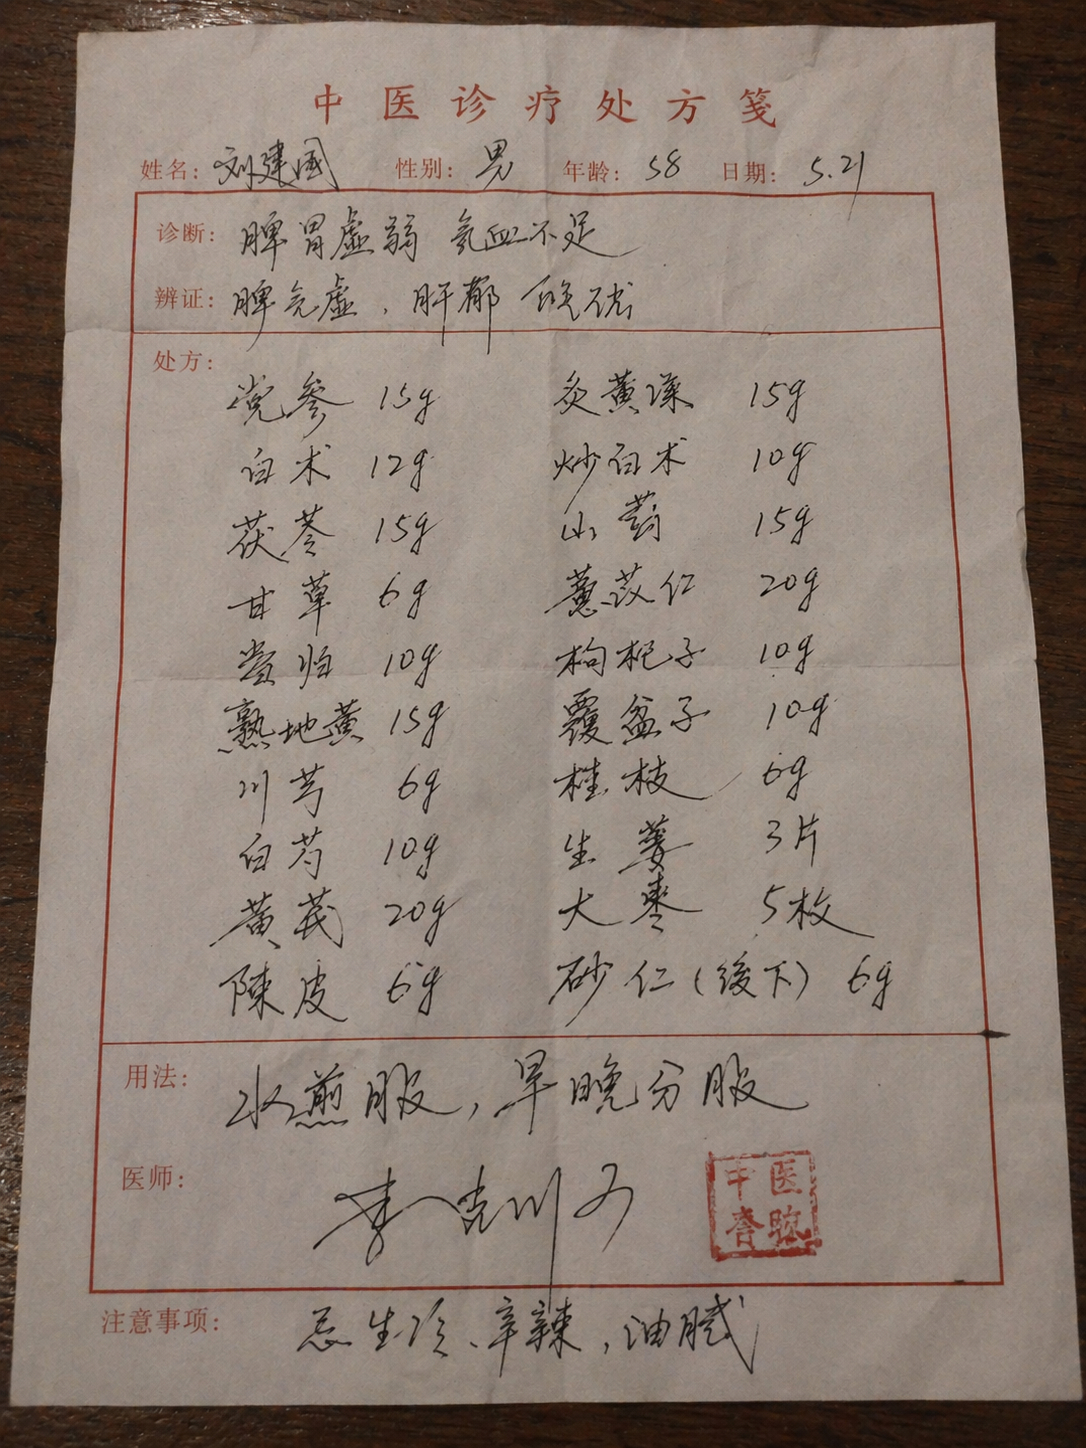 中医诊疗处方笺
姓名: 刘建国 性别: 男 年龄: 58 日期: 5.21
诊断: 脾胃虚弱 氣血不足
辨证: 脾气虚，肝郁
处方:
党参 15g 炙黄 15g
白术 12g 炒白术 10g
茯苓 15g 山药 15g
甘草 6g 薏苡仁 20g
当归 10g 枸杞子 10g
熟地黄 15g 覆盆子 10g
川芎 6g 桂枝 6g
白芍 10g 生姜 3片
黄芪 20g 大枣 5枚
陳皮 6g 砂仁(後下) 6g
用法: 水煎服，早晚分服
医师: 李
中医
注意事项: 忌生冷、辛辣，油腻